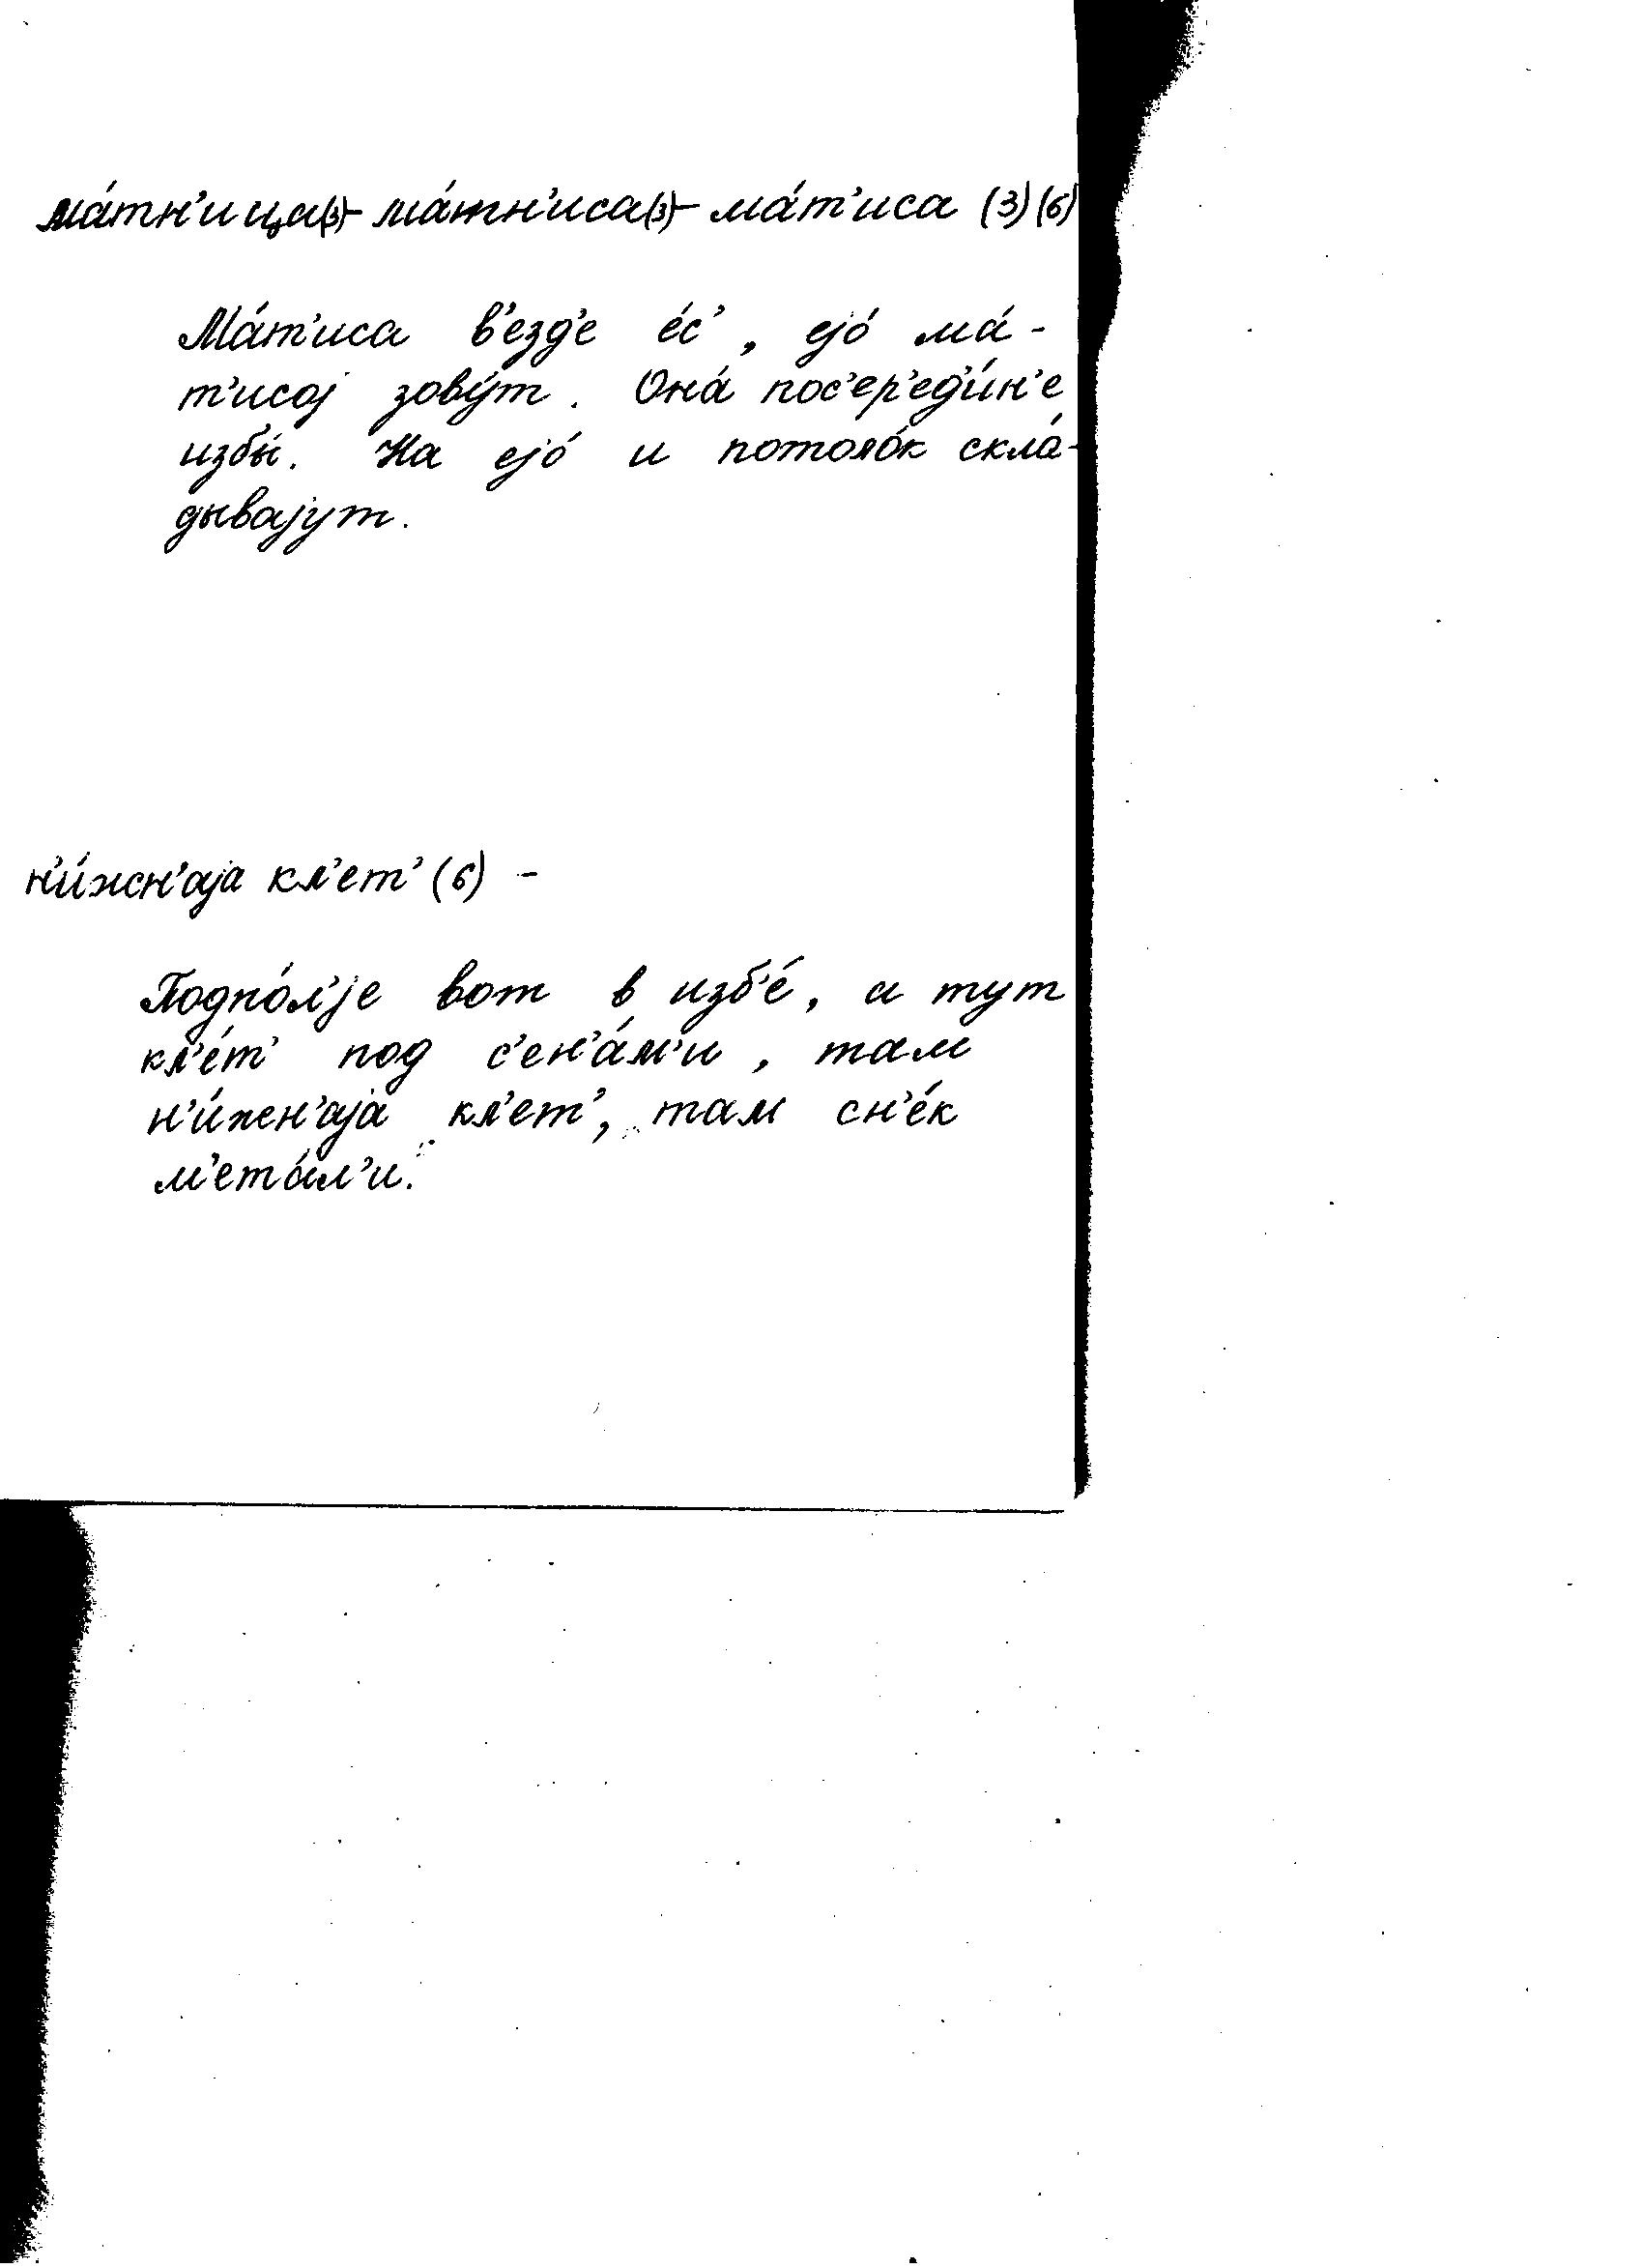 ма́тн'ица(3)- ма́тн'иса(3)- ма́т'иса (3)(6)
Ма́т'иса в'езд'е е́с', ејо́ ма́-
т'исој зову́т. Она́ пос'ер'ед'и́н'е
избы́. На ејо́ и потоло́к скла́-
дывајут.
н'и́жн'аја кл'ет' (6) -
Подпо́л'је вот в изб'е́, а тут
кл'е́т' под с'ен'а́м'и, там
н'и́жн'аја кл'ет', там сн'е́к
м'ета́л'и.